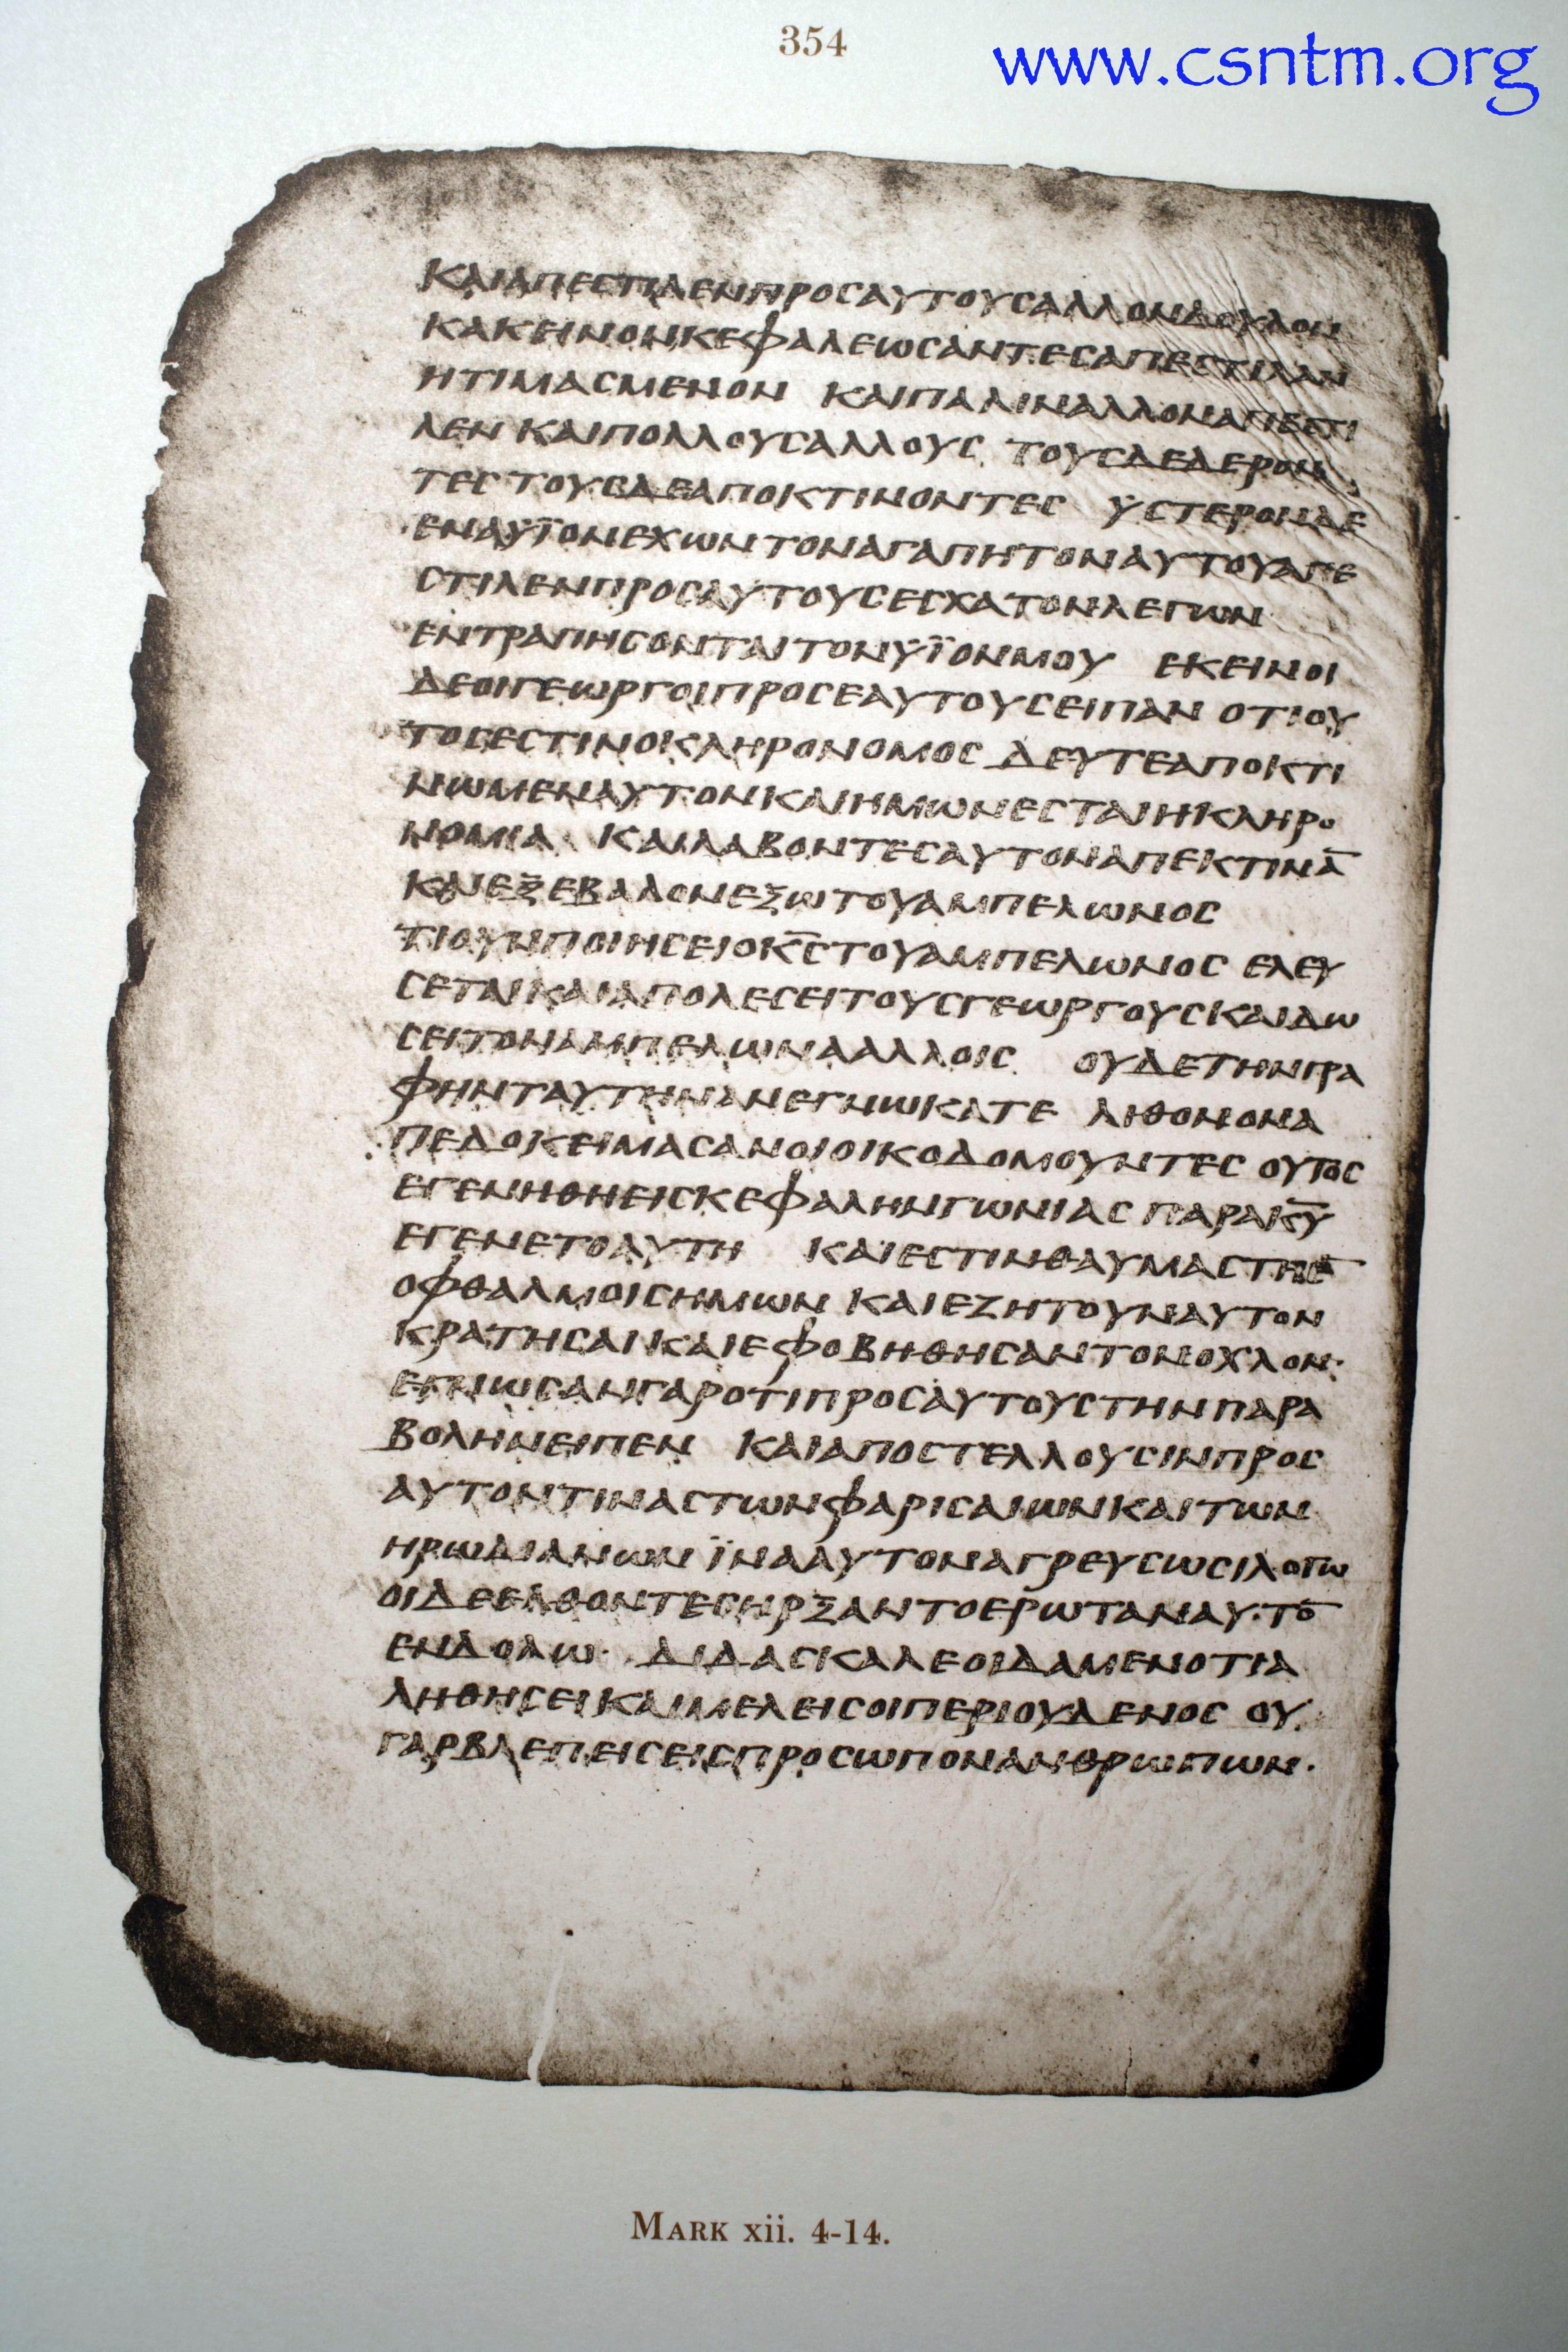 354
www.csntm.org
ΚΑΙΑΠΕCΤΙΛΕΝΠΡΟCΑΥΤΟΥCΑΛΛΟΝΔΟΥΛΟΝ
ΚΑΚΕΙΝΟΝΚΕΦΑΛΕΩCΑΝΤΕCΑΠΕCΤΙΛΑΝ
ΗΤΙΜΑCΜΕΝΟΝ ΚΑΙΠΑΛΙΝΑΛΛΟΝΑΠΕCΤΙ
ΛΕΝ ΚΑΙΠΟΛΛΟΥCΑΛΛΟΥC ΤΟΥCΔΕΔΕΡΟΝ
ΤΕC ΤΟΥCΔΕΑΠΟΚΤΙΝΟΝΤΕC ΥCΤΕΡΟΝΔΕ
ΕΝΑΥΪΟΝΕΧΩΝΤΟΝΑΓΑΠΗΤΟΝΑΥΤΟΥΑΠΕ
CΤΙΛΕΝΠΡΟCΑΥΤΟΥCΕCΧΑΤΟΝΛΕΓΩΝ
ΕΝΤΡΑΠΗCΟΝΤΑΙΤΟΝΥΪΟΝΜΟΥ ΕΚΕΙΝΟΙ
ΔΕΟΙΓΕΩΡΓΟΙΠΡΟCΕΑΥΤΟΥCΕΙΠΑΝ ΟΤΙΟΥ
ΤΟCΕCΤΙΝΟΚΛΗΡΟΝΟΜΟC ΔΕΥΤΕΑΠΟΚΤΙ
ΝΩΜΕΝΑΥΤΟΝΚΑΙΗΜΩΝΕCΤΑΙΗΚΛΗΡΟ
ΝΟΜΙΑ ΚΑΙΛΑΒΟΝΤΕCΑΥΤΟΝΑΠΕΚΤΙΝΑ̅
ΚΑΙΕΞΕΒΑΛΟΝΕΞΩΤΟΥΑΜΠΕΛΩΝΟC
ΤΙΟΥΝΠΟΙΗCΕΙΟΚ̅C̅ΤΟΥΑΜΠΕΛΩΝΟC ΕΛΕΥ
CΕΤΑΙΚΑΙΑΠΟΛΕCΕΙΤΟΥCΓΕΩΡΓΟΥCΚΑΙΔΩ
CΕΙΤΟΝΑΜΠΕΛΩΝΑΑΛΛΟΙC ΟΥΔΕΤΗΝΓΡΑ
ΦΗΝΤΑΥΤΗΝΑΝΕΓΝΩΚΑΤΕ ΛΙΘΟΝΟΝΑ
ΠΕΔΟΚΕΙΜΑCΑΝΟΙΟΙΚΟΔΟΜΟΥΝΤΕC ΟΥΤΟC
ΕΓΕΝΗΘΗΕΙCΚΕΦΑΛΗΝΓΩΝΙΑC ΠΑΡΑΚ̅Υ̅
ΕΓΕΝΕΤΟΑΥΤΗ ΚΑΙΕCΤΙΝΘΑΥΜΑCΤΗΕ̅
ΟΦΘΑΛΜΟΙCΗΜΩΝ ΚΑΙΕΖΗΤΟΥΝΑΥΤΟΝ
ΚΡΑΤΗCΑΙΚΑΙΕΦΟΒΗΘΗCΑΝΤΟΝΟΧΛΟΝ·
ΕΓΝΩCΑΝΓΑΡΟΤΙΠΡΟCΑΥΤΟΥCΤΗΝΠΑΡΑ
ΒΟΛΗΝΕΙΠΕΝ ΚΑΙΑΠΟCΤΕΛΛΟΥCΙΝΠΡΟC
ΑΥΤΟΝΤΙΝΑCΤΩΝΦΑΡΙCΑΙΩΝΚΑΙΤΩΝ
ΗΡΩΔΙΑΝΩΝ ΪΝΑΑΥΤΟΝΑΓΡΕΥCΩCΙΛΟΓΩ
ΟΙΔΕΕΛΘΟΝΤΕCΗΡΞΑΝΤΟΕΡΩΤΑΝΑΥΤΟ̅
ΕΝΔΟΛΩ· ΔΙΔΑCΚΑΛΕΟΙΔΑΜΕΝΟΤΙΑ
ΛΗΘΗCΕΙΚΑΙΜΕΛΕΙCΟΙΠΕΡΙΟΥΔΕΝΟC ΟΥ
ΓΑΡΒΛΕΠΕΙCΕΙCΠΡΟCΩΠΟΝΑΝΘΡΩΠΩΝ·
MARK xii. 4-14.